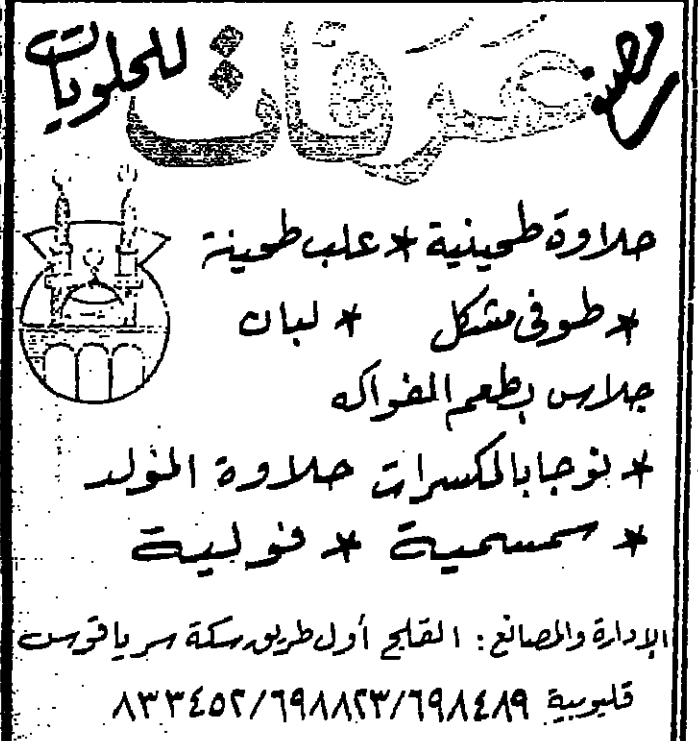 مصنع عرفات للحلويات
حلاوة طحينية * علب طحينة
* طوفى مشكل * لبان
جلاس بطعم الفواكه
* نوجا بالمكسرات حلاوة المولد
* سمسمية * فولية
الإدارة والمصانع : القلج أول طريق سكة سرياقوس
قليوبية ٦٩٨٤٨٩/٦٩٨٨٢٣/٨٣٣٤٥٢